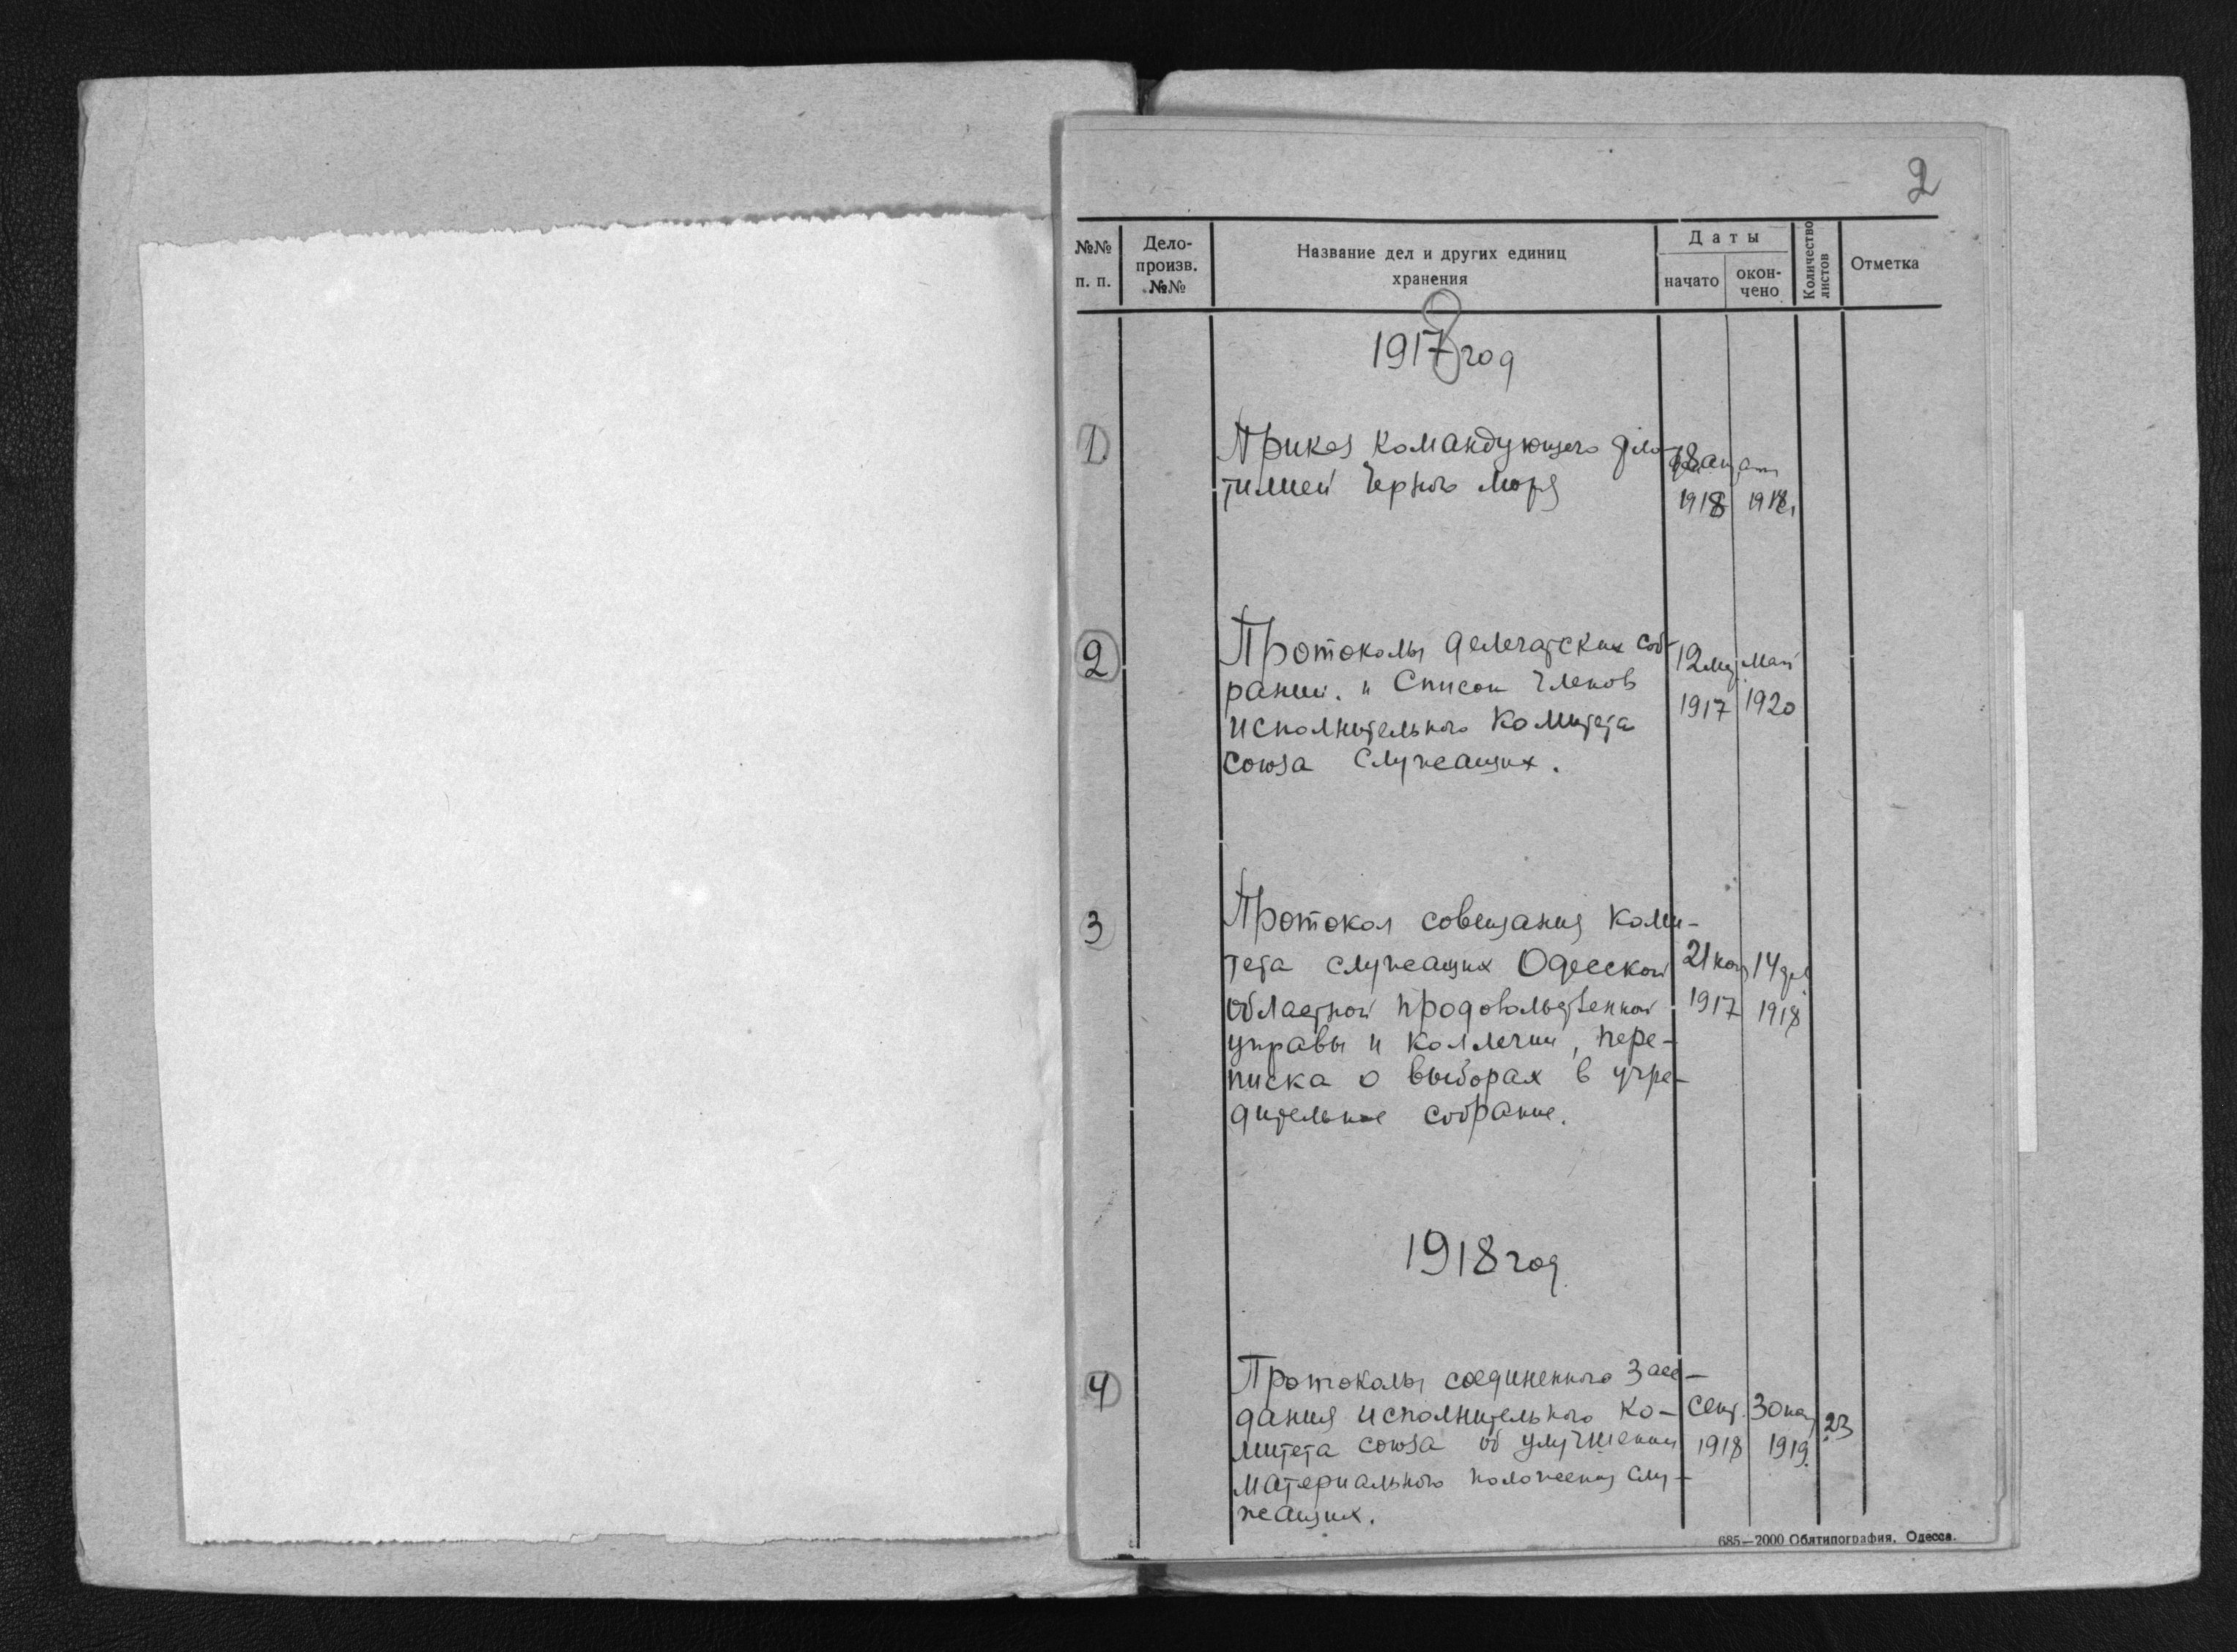 2
№№ п. п.
Дело-произв. №№
Название дел и других единиц хранения
Даты
начато
окон-чено
Количество листов
Отметка
1917 год
1.
Приказ командующего фло-
тилией Черного моря
1918 1918
2
Протоколы делегатских соб-
раний. и Список членов
исполнительного комитета
союза служащих.
12 май
1917 1920
3
Протокол совещания коми-
тета служащих Одесской
областной продовольственной
управы и коллегии, пере-
писка о выборах в учре-
дительное собрание.
21 14
1917 1918
1918 год
4
Протоколы соединенного засе-
дания исполнительного ко-
митета союза об улучшении
материального положения слу-
жащих.
сент. 30
1918 1919
23
685—2000 Облтипография, Одесса.